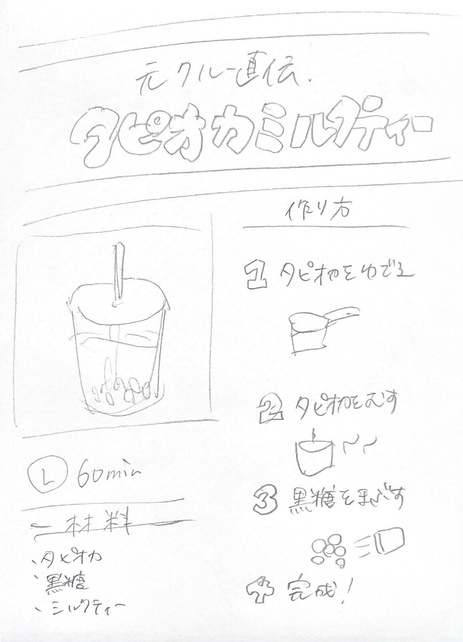 元クルー直伝.
タピオカミルクティー
L 60min
材料
・タピオカ
・黒糖
・ミルクティー
作り方
1 タピオカをゆでる
2 タピオカをむす
3 黒糖をまぶす
4 完成!